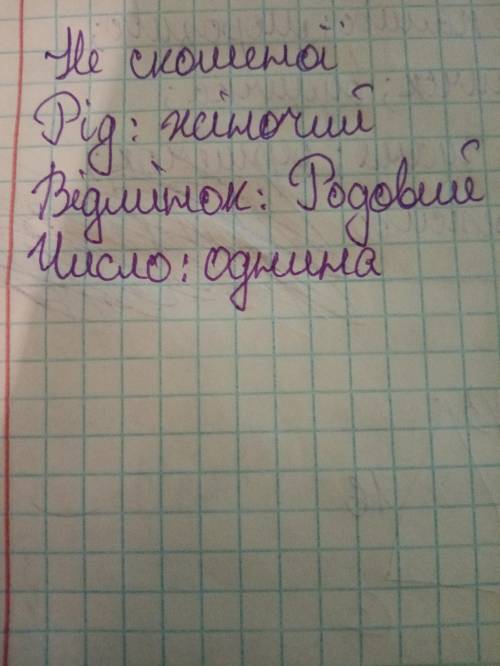 Не скошеної
Рід: жіночий
Відмінок: Родовий
Число: однина